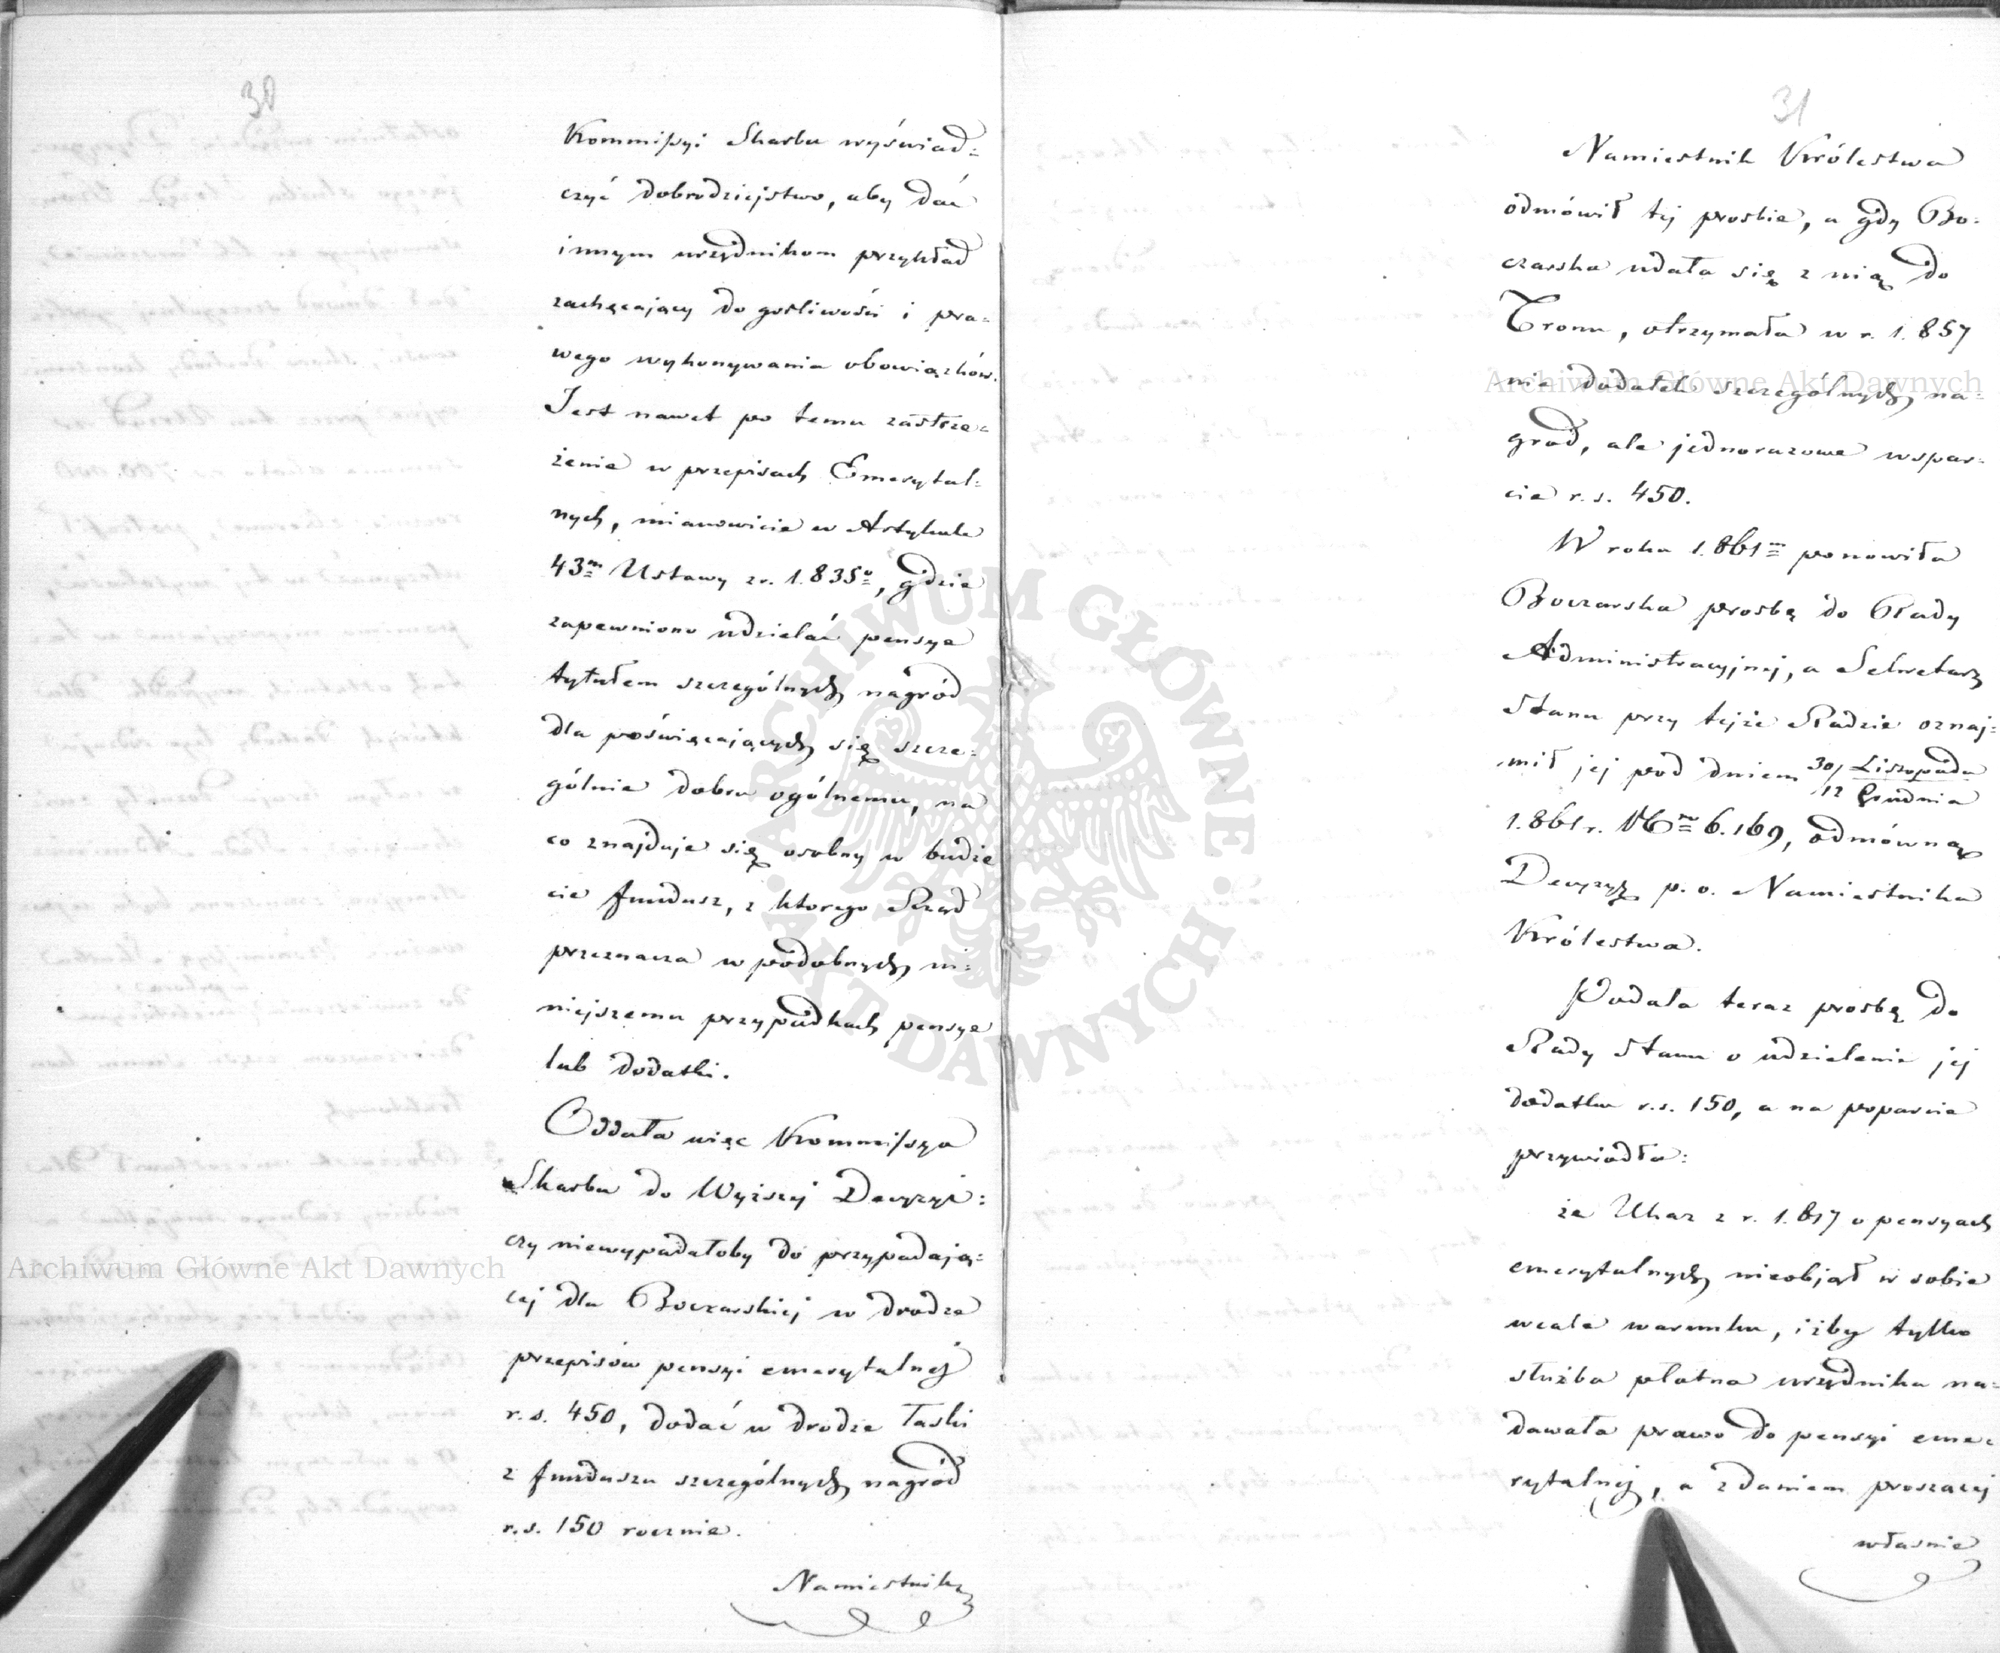 30
Kommissyi Skarbu wyświad=
czyć dobrodziejstwo, aby dać
innym urzędnikom przykład
zachęcający do gorliwości i pra=
wego wykonywania obowiązków.
Jest nawet po temu zastrze=
żenie w przepisach Emerytal=
nych, mianowicie w Artykule
43m Ustawy z r. 1.835o, gdzie
zapewniono udzielać pensye
tytułem szczególnych nagród
dla poświęcających się szcze=
gólnie dobru ogólnemu, na
co znajduje się osobny w budże
cie fundusz, z ktorego Rząd
przeznacza w podobnych ni=
niejszemu przypadkach pensye
lub dodatki.
Oddała więc Kommissya
Skarbu do Wyższej Decyzyi:
czy niewypadałoby do przypadają=
cej dla Boczarskiej w drodze
przepisów pensyi emerytalnej
r. s. 450, dodać w drodze łaski
z funduszu szczególnych nagród
r. s. 150 rocznie.
Namiestnik
31
Namiestnik Królestwa
odmówił tej prosbie, a gdy Bo=
czarska udała się z nią do
Tronu, otrzymała w r. 1.857
nie dodatek szczególnych na=
gród, ale jednorazowe wspar=
cie r. s. 450.
W roku 1.861m ponowiła
Boczarska prosbę do Rady
Administracyjnej, a Sekretarz
Stanu przy tejże Radzie oznaj=
mił jej pod dniem 30/12 Listopada Grudnia
1.861 r. No 6.169, odmówną
Decyzyę p. o. Namiestnika
Królestwa.
Podała teraz prosbę do
Rady Stanu o udzielenie jej
dodatku r. s. 150, a na poparcie
przywiodła:
że Ukaz z r. 1.817 o pensyach
emerytalnych nieobjął w sobie
wcale warunku, iżby tylko
służba płatna urzędnika na=
dawała prawo do pensyi eme=
rytalnej, a zdaniem proszącej
własnie
Archiwum Główne Akt Dawnych
Archiwum Główne Akt Dawnych
ARCHIWUM GŁÓWNE
AKT DAWNYCH